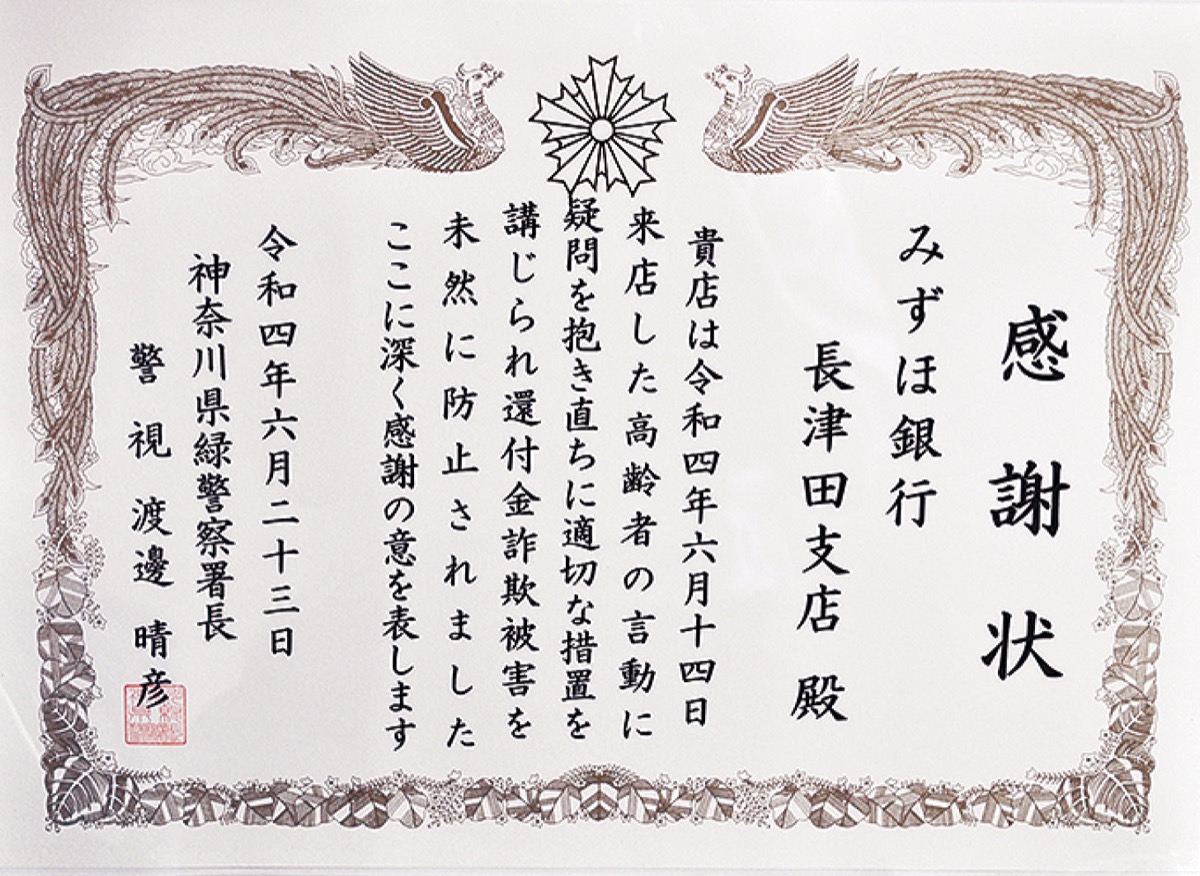 感謝状
みずほ銀行
長津田支店 殿
貴店は令和四年六月十四日
来店した高齢者の言動に
疑問を抱き直ちに適切な措置を
講じられ還付金詐欺被害を
未然に防止されました
ここに深く感謝の意を表します
令和四年六月二十三日
神奈川県緑警察署長
警視 渡邊 晴彦